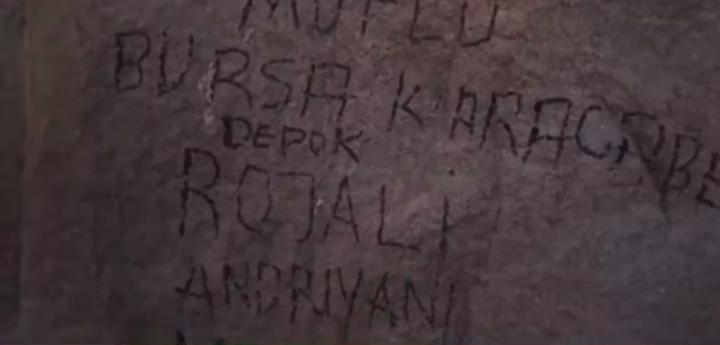 BURSA KARACABE
DEPOK
ROJALi
ANDRIYANI